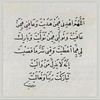 اللهم اهدني فيمن هديت وعافني فيمن
عافيت وتولني فيمن توليت وبارك
لي فيما أعطيت وقني شر ما قضيت
إنه لا يذل من واليت
تباركت ربنا وتعاليت